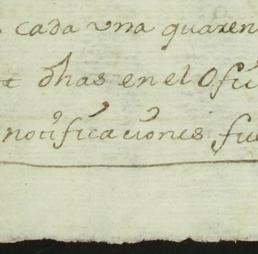 cada una quaren
dhas en el Ofi
notificaciones fu